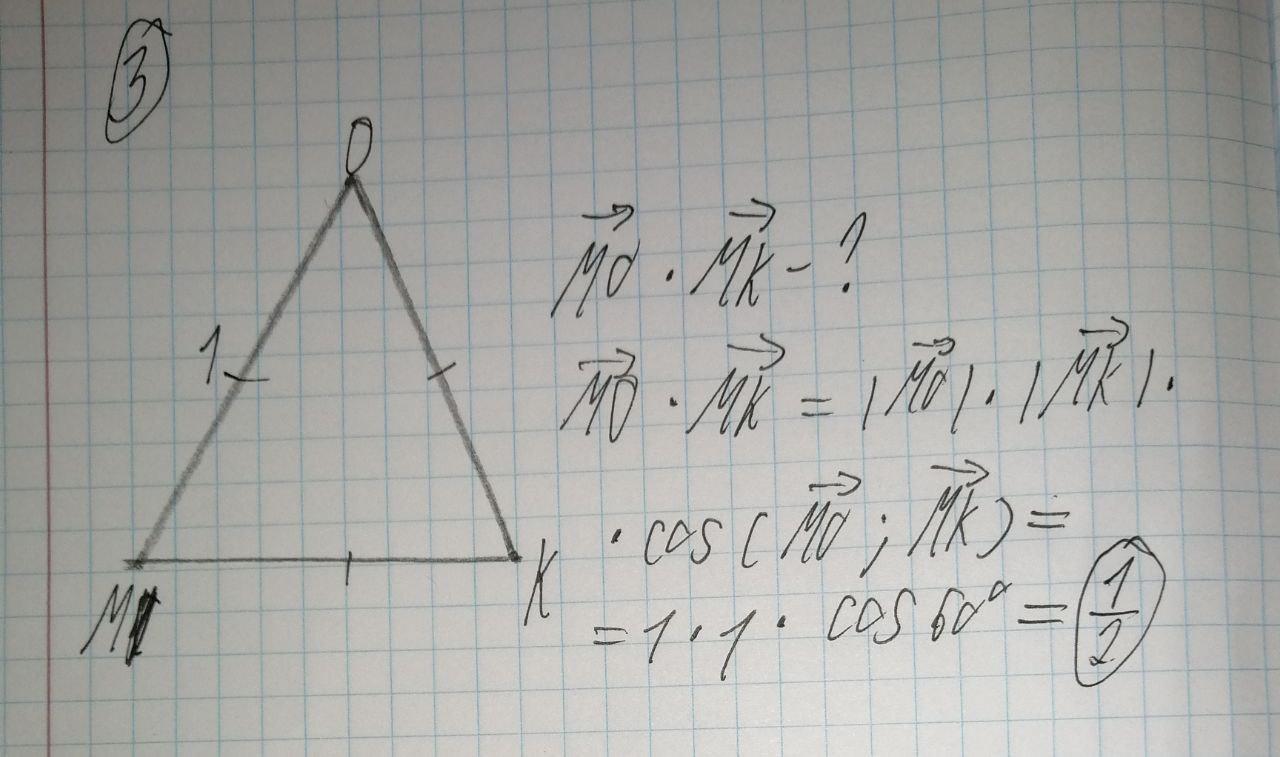 3
O
1
M
K
MO · MK - ?
MO · MK = |MO| · |MK| ·
· cos(MO; MK) =
= 1 · 1 · cos 60° = 1/2